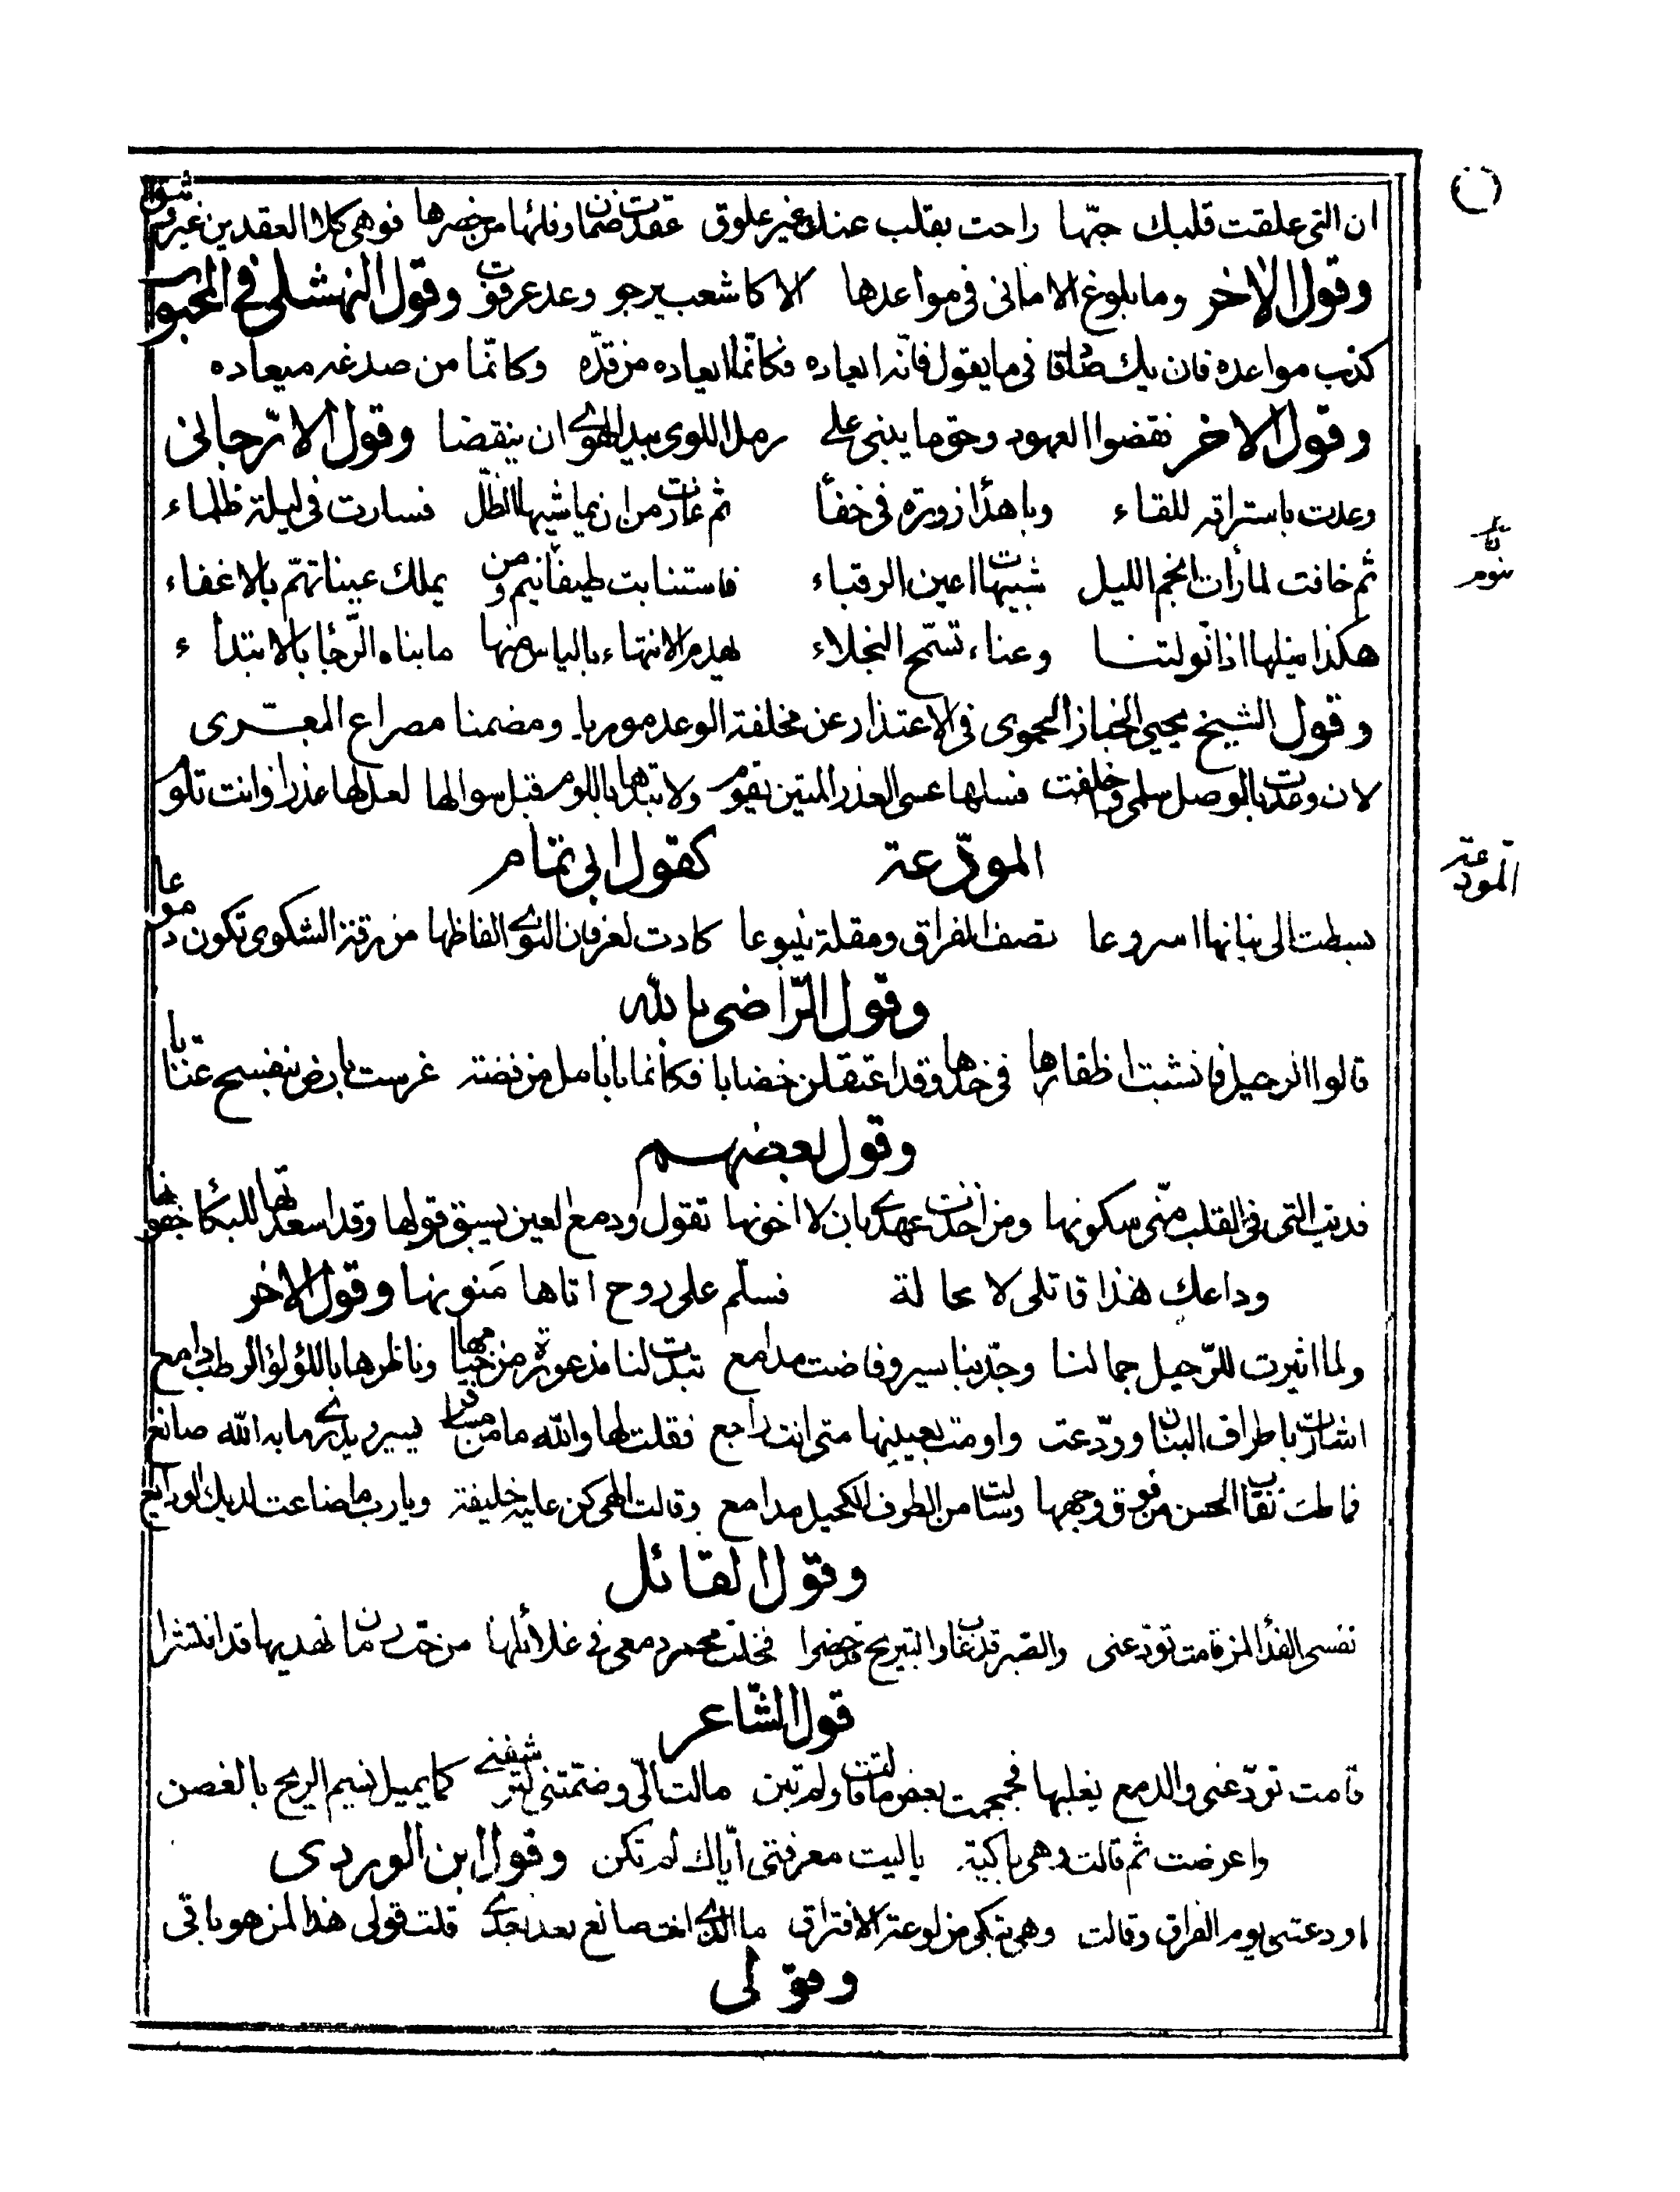 ان التى علقت قلبك حبّها راحت بقلب عنك غير علوق عقدت ضمان وفائها من خصرها فوهى كلا العقدين غير وثيق
وقول الاخر وما بلوغ الامانى فى مواعدها الا كاشعب يرجو وعد عرقوب وقول النهشلى فى المحبوب
كذب مواعده فان يك صادقا فى ما يقول فانه ابعاده فكانّما ابعاده من قدّه وكانّما من صدغه ميعاده
وقول الاخر نقضوا العهود وحق ما يبنى على رمل اللوى بيد الهوى ان ينقضا وقول الارّجانى
وعدت باستراقه للقاء وباهداء زورة فى خفاء ثم غارت من ان يماشيها الظلّ فسارت فى ليلة ظلماء
ثم خافت لما رات انجم الليل شبيهات اعين الرقباء فاستنابت طيفا يلمّ ومن يملك عينا تهمّ بالاغفاء
هكذا نيلها اذا نولتنا وعناء تسمّح البخلاء يهدم الانتهاء بالياس منها ما بناه الرّجا بالابتداء
وقول الشيخ يحيى الخباز الحموى فى الاعتذار عن مخلفة الوعد موريا ومضمنا مصراع المعرّى
لان وعدت بالوصل سلمى واخلفت فسلها عسى العذر المتين يقوم ولا تبدها باللوم قبل سوالها لعل لها عذرا وانت تلوم
المودّعة كقول ابى تمام
بسطت الى بنانها اسروعا تصف الفراق ومقلة ينبوعا كادت لعرفان النوى الفاظها من رقة الشكوى تكون دموعا
وقول الرّاضى بالله
قالوا الرحيل فانشبت اظفارها فى خدها وقد اعتقلن خضابا فكانما بانامل من فضة غرست بارض بنفسج عنّابا
وقول بعضهم
فديت التى فى القلب منّى سكونها ومن اخذت عهدى بان لا اخونها تقول ودمع العين يسبق قولها وقد اسعدتها للبكاء جفونها
وداعك هذا قاتلى لا محالة فسلّم على روح اتاها مَنونها وقول الاخر
ولما اثيرت للرّحيل جمالنا وجدّ بنا سير وفاضت مدامع تبدّت لنا مذعورة من خبائها وناظرها باللؤلؤ الرطب دامع
اشارت باطراف البنان وودّعت واومت بعينيها متى انت راجع فقلت لها والله ما من مسافر يسير ويدرى ما به الله صانع
فماطت نقاب الحسن من فوق وجهها وسالت من الطرف الكحيل مدامع وقالت الهى كن عليه خليفة ويا رب ما ضاعت لديك الودايع
وقول القائل
نفسى الفدا لمن قامت تودّعنى والصّبر قد غاب والتبريح قد حضرا فخلت محمر دمعى فى غلائلها من تحت رمان نهديها قد انتثرا
قول الشّاعر
قامت تودّعنى والدمع يغلبها فجمجمت بعض ما قالت ولم تبن مالت الىّ وضمّتنى لترشفنى كما يميل نسيم الريح بالغصن
واعرضت ثم قالت وهى باكية يا ليت معرفتى ايّاك لم تكن وقول ابن الوردى
اودعتنى يوم الفراق وقالت وهى تبكى من لوعة الافتراق ما الذى انت صانع بعد بعدى قلت قولى هذا لمن هو باقى
وقولى
المودّعة